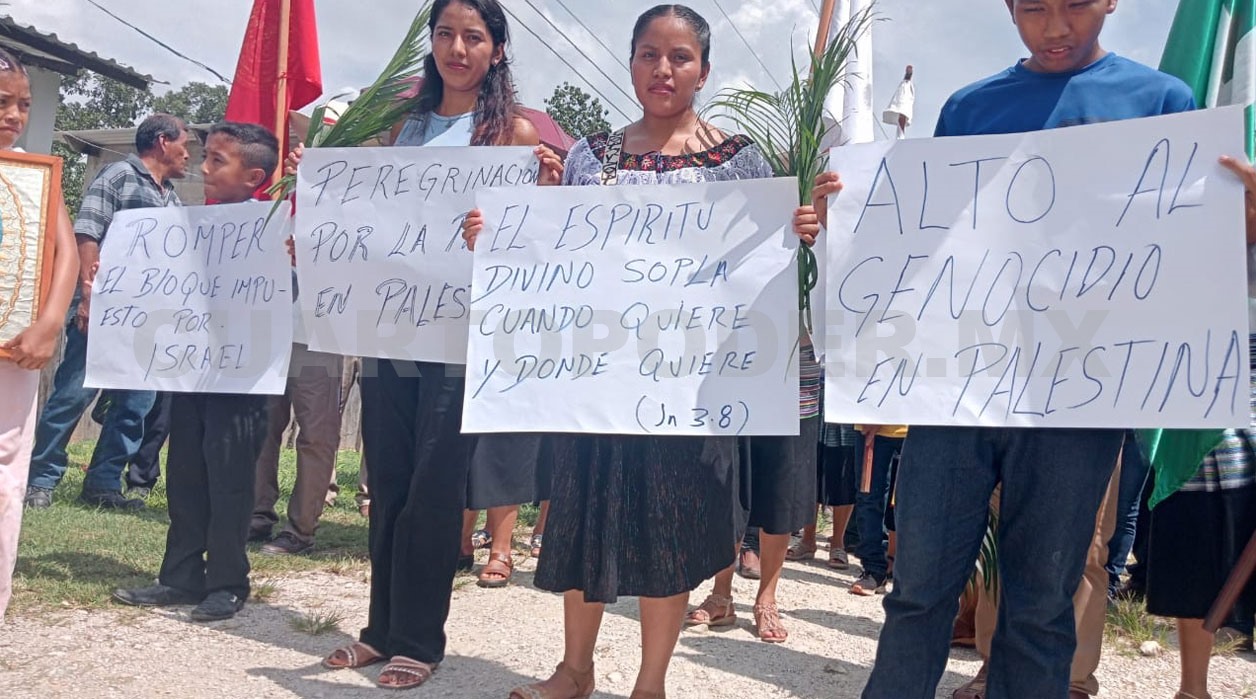 ROMPER
EL BLOQUE IMPU-
ESTO POR.
ISRAEL
PEREGRINACIO
POR LA
EN PALEST
EL ESPIRITU
DIVINO SOPLA
CUANDO QUIERE
Y DONDE QUIERE
(Jn 3.8)
ALTO AL
GENOCIDIO
EN PALESTINA
CUARTOPODER.MX